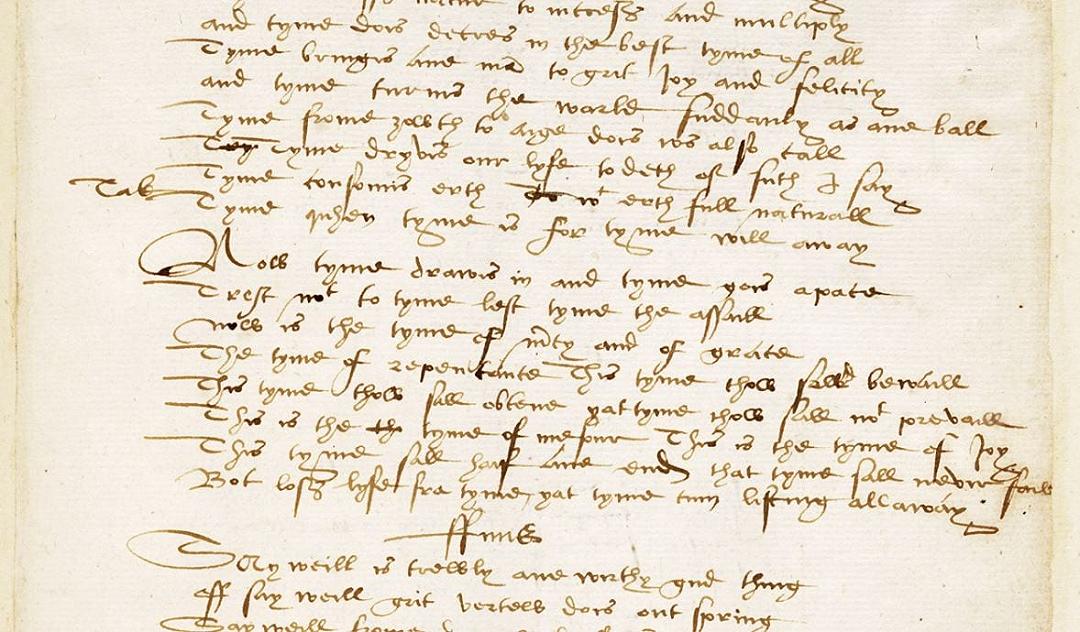 to incress and multiply
and tyme dois decres in the best tyme of all
Tyme bringis ane mã to grit Joy and felicity
and tyme turnis the warld suddanly as ane ball
Tyme frome zowth to aige dois ws also call
Tyme dryvis our lyfe to deth of suth I say
Tyme consomis erth to wt erth full naturall
Tak Tyme quhen tyme is for tyme will away
Now tyme drawis in and tyme gois apace
Trest not to tyme lest tyme the assaill
Now is the tyme of mcy and of grace
The tyme of repentance This tyme thow sall bewaill
This tyme thow sall obtene yat tyme thow sall not prevaill
This is the th tyme of mesour This is the tyme of Joy
This tyme sall haif ane end that tyme sall nevir faill
Bot loss lyfe fra tyme yat tyme cum lifting all away
ffinis
Say weill is trewly ane wirthy gud thing
Off say weill grit vertew dois out spring
Say weill frome